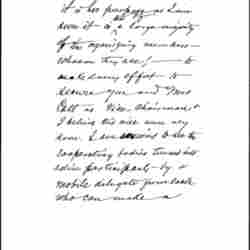 it is her purpose as I am
sure it is the large majority
of the organizing members—
whoever they are!— to
make every effort to
secure you and Mrs
Catt as Vice Chairmen &
I believe this will
done. I am anxious to see the
cooperating bodies turned into
active participants—by a
mobile delegate from each
who can make a